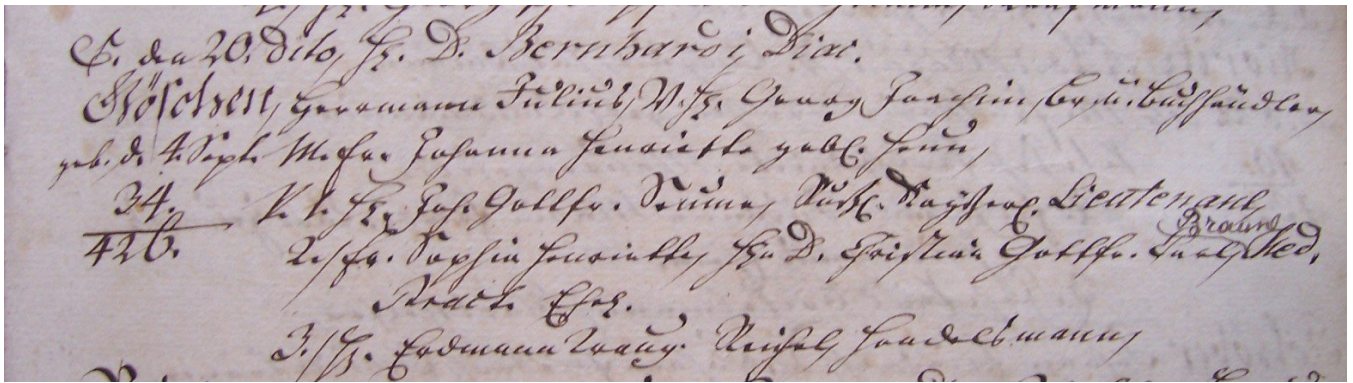 5. den 20. dito, Hr. D. Bernhardi, Diac.
Göschen, Herrmann Julius, V. Hr. Georg Joachim, Br. u. Buchhändler,
geb. d. 4. Sept. M. Fr. Johanna Henriette geb. Heun,
34. P. 1. Hr. Joh. Gottfr. Seume, Russ. Kayserl. Lieutenant,
426. 2. Fr. Sophia Henriette, Hrn D. Christian Gottfr. Carl Braune, Med.
Pract. Ehel.
3. Hr. Erdmann Traug. Reichel, Handelsmann,